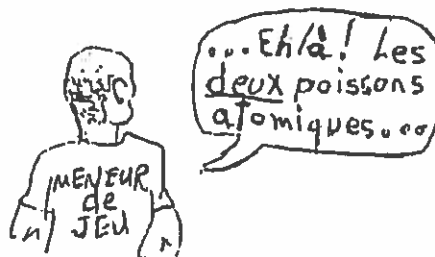 ...Eh là! Les
deux poissons
atomiques...
MENEUR
de
JEU